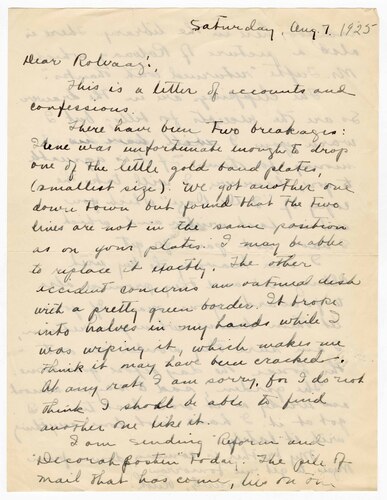 Saturday, Aug 7, 1925
Dear Rolvaag:,
This is a letter of accounts and
confessions.
There have been two breakages:
was unfortunate enough to drop
one of the little gold band plates,
(smallest size). We got another one
down town but found that the two
lines are not in the same position
as on your plates. I may be able
to replace it exactly. The other
accident concerns an oatmeal dish
with a pretty green border. It broke
into halves in my hands while I
was wiping it, which makes me
think it may have been cracked.
At any rate I am sorry, for I do not
think I shall be able to find
another one like it.
I am sending Reform and
"Decorah Posten" today. The pile of
mail that has come, lie on on